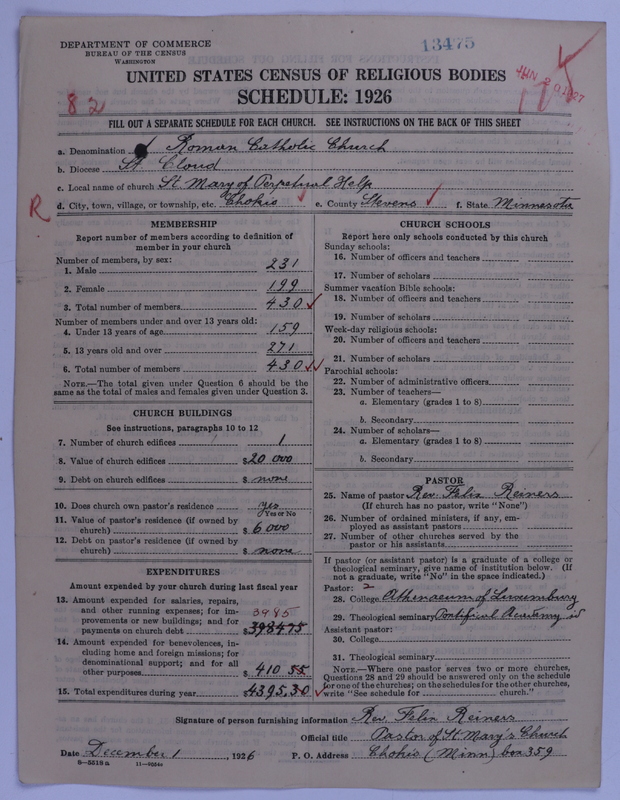 DEPARTMENT OF COMMERCE
BUREAU OF THE CENSUS
WASHINGTON
13475
UNITED STATES CENSUS OF RELIGIOUS BODIES
JUN 29 1927
82
SCHEDULE: 1926
FILL OUT A SEPARATE SCHEDULE FOR EACH CHURCH. SEE INSTRUCTIONS ON THE BACK OF THIS SHEET
a. Denomination Roman Catholic Church
b. Diocese St. Cloud
c. Local name of church St. Mary of Perpetual Help
R d. City, town, village, or township, etc. Chokio e. County Stevens f. State Minnesota
MEMBERSHIP
Report number of members according to definition of member in your church
Number of members, by sex:
1. Male 231
2. Female 199
3. Total number of members 430
Number of members under and over 13 years old:
4. Under 13 years of age 159
5. 13 years old and over 271
6. Total number of members 430
NOTE.—The total given under Question 6 should be the
same as the total of males and females given under Question 3.
CHURCH BUILDINGS
See instructions, paragraphs 10 to 12
7. Number of church edifices 1
8. Value of church edifices $20 000
9. Debt on church edifices $ none
10. Does church own pastor's residence yes
Yes or No
11. Value of pastor's residence (if owned by
church) $ 6 000
12. Debt on pastor's residence (if owned by
church) $ none
EXPENDITURES
Amount expended by your church during last fiscal year
13. Amount expended for salaries, repairs,
and other running expenses; for im- 3985
provements or new buildings; and for
payments on church debt $398475
14. Amount expended for benevolences, in-
cluding home and foreign missions; for
denominational support; and for all
other purposes $ 410 55
15. Total expenditures during year $4395,30
CHURCH SCHOOLS
Report here only schools conducted by this church
Sunday schools:
16. Number of officers and teachers
17. Number of scholars
Summer vacation Bible schools:
18. Number of officers and teachers
19. Number of scholars
Week-day religious schools:
20. Number of officers and teachers
21. Number of scholars
Parochial schools:
22. Number of administrative officers
23. Number of teachers—
a. Elementary (grades 1 to 8)
b. Secondary
24. Number of scholars—
a. Elementary (grades 1 to 8)
b. Secondary
PASTOR
25. Name of pastor Rev. Felix Reiners
(If church has no pastor, write "None")
26. Number of ordained ministers, if any, em-
ployed as assistant pastors
27. Number of other churches served by the
pastor or his assistants
If pastor (or assistant pastor) is a graduate of a college or
theological seminary, give name of institution below. (If
not a graduate, write "No" in the space indicated.)
Pastor: 2
28. College Athenaeum of Luxemburg
29. Theological seminary Pontifical Academy
Assistant pastor:
30. College
31. Theological seminary
NOTE.—Where one pastor serves two or more churches,
Questions 28 and 29 should be answered only on the schedule
for one of the churches; on the schedules for the other churches,
write "See schedule for church."
Signature of person furnishing information Rev. Felix Reiners
Official title Pastor of St. Mary's Church
Date December 1, 1926 P. O. Address Chokio (Minn) box 359
8-5518a